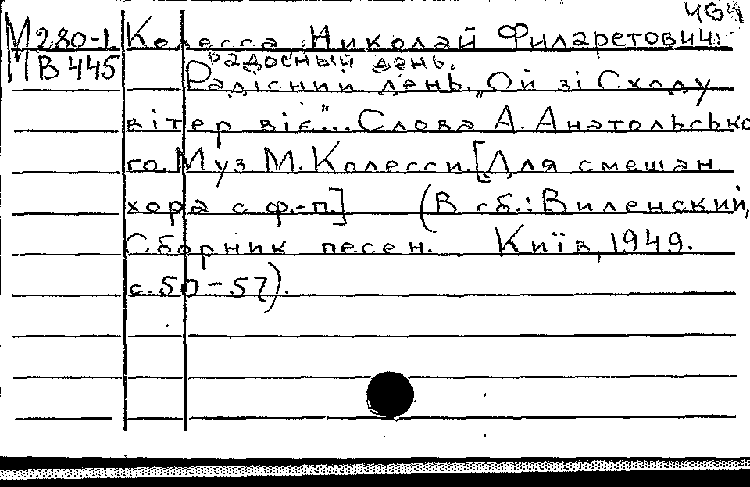 464
М 280-1 Колесса, Николай Филаретович.
В 445 Радосный день.
Радісний день. „Ой зі Сходу
вітер віє"... Слова А. Анатольсько-
го. Муз. М. Колесси. [Для смешан
хора с ф.-п.] (В сб.: Виленский,
Сборник песен. Київ, 1949.
с. 50-57).